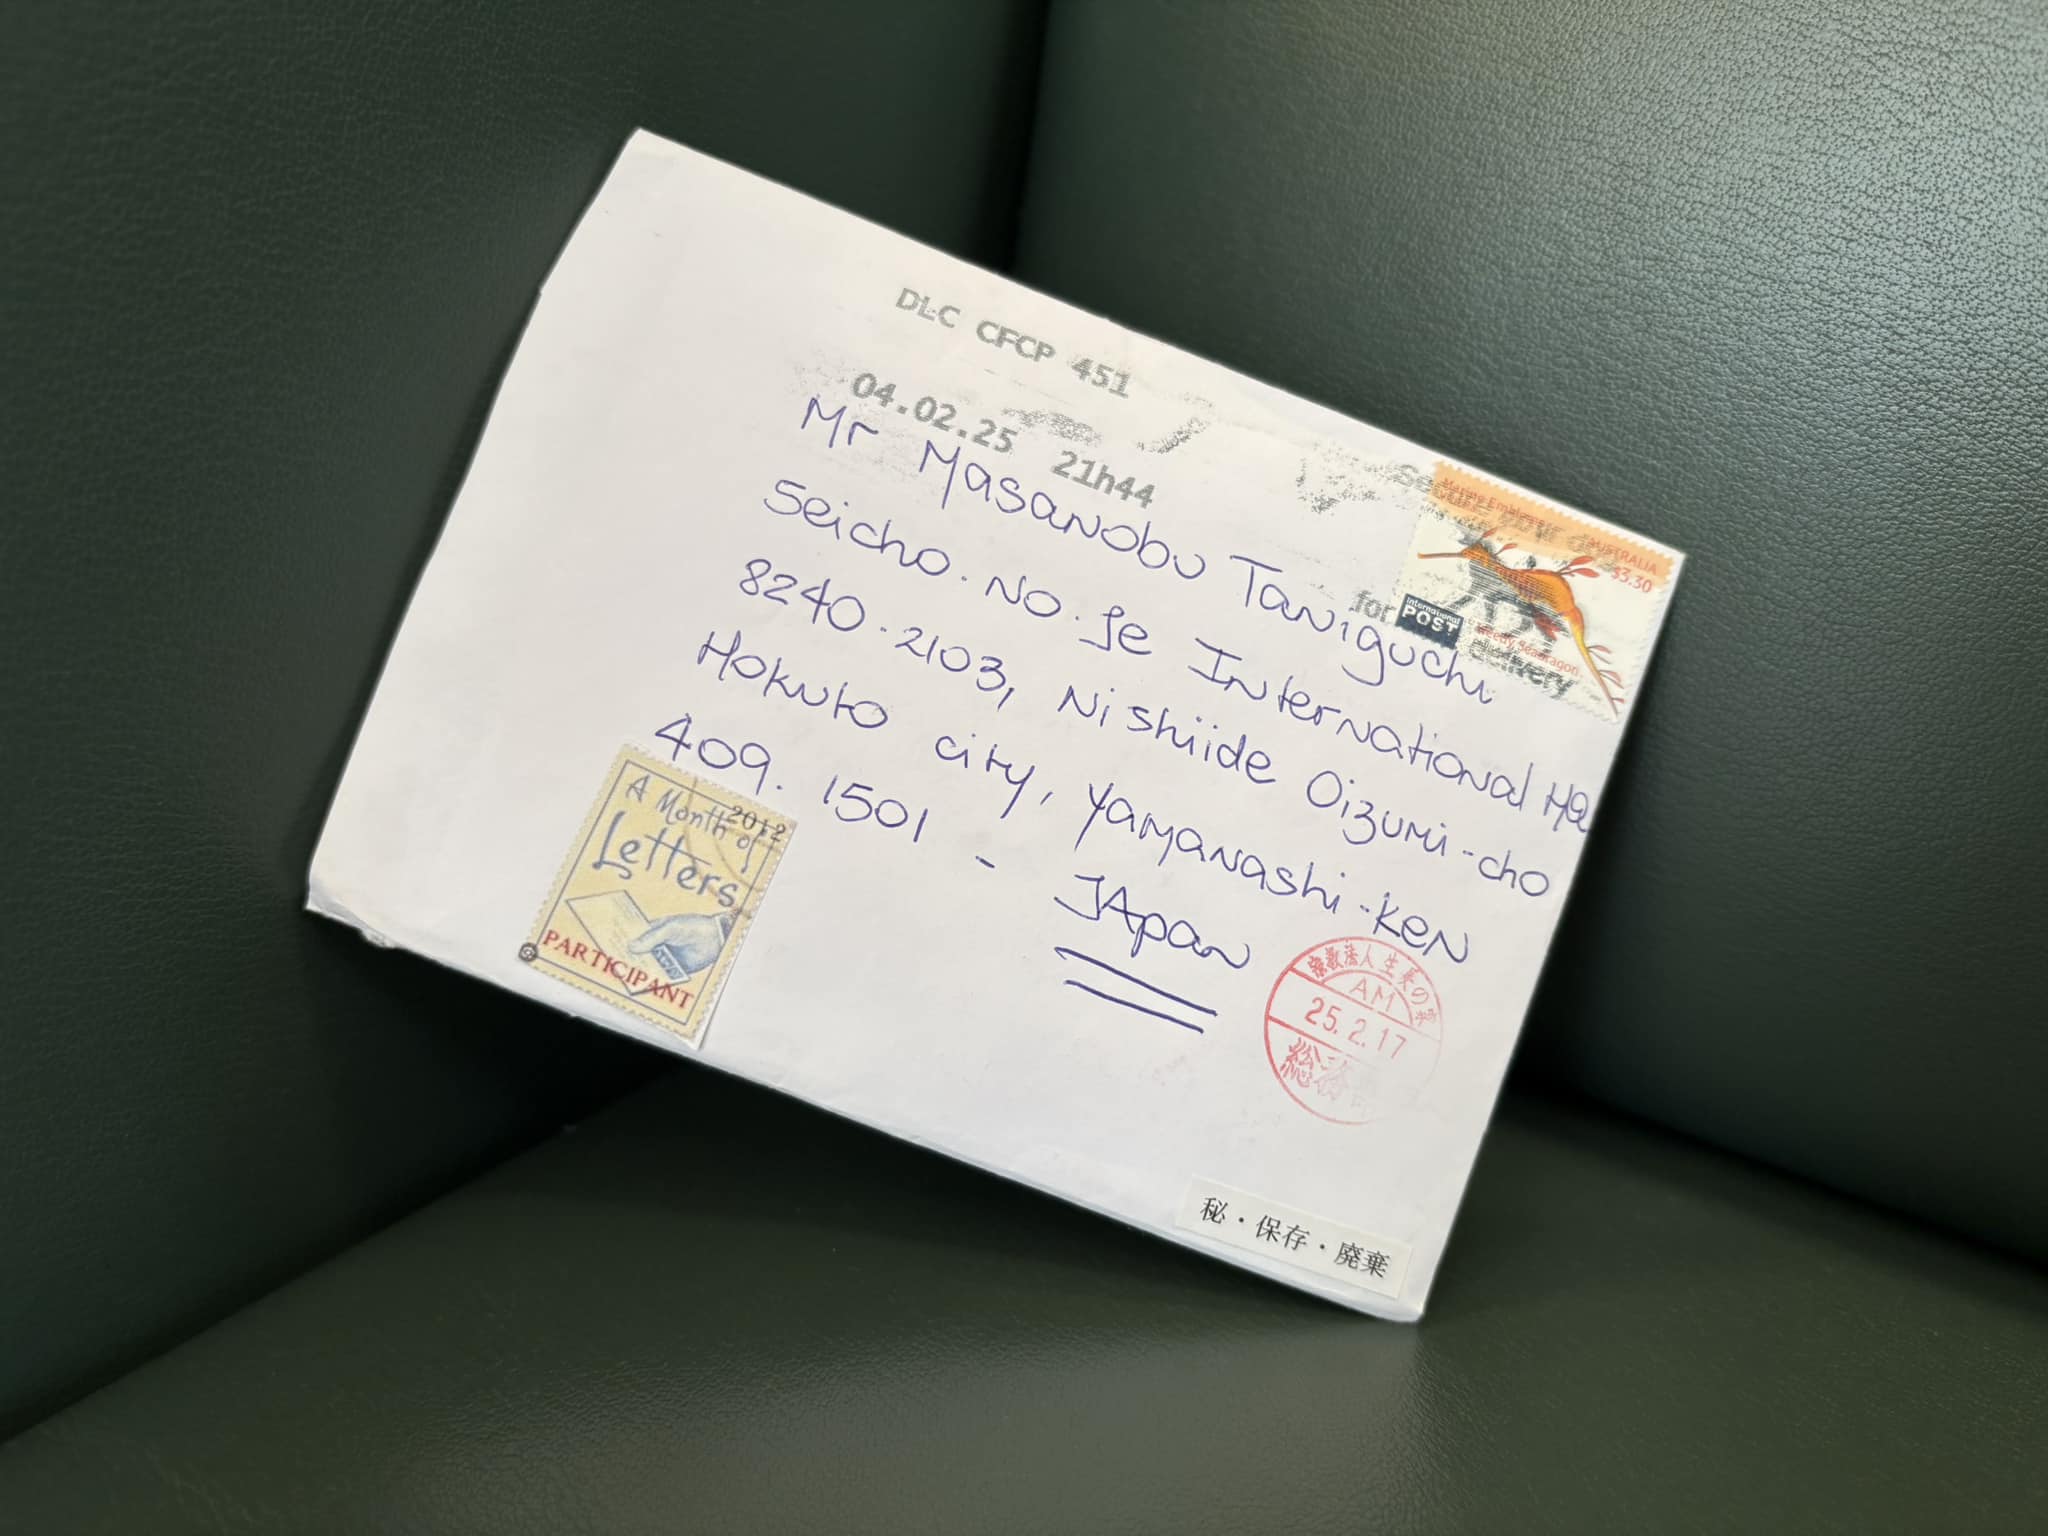 DLC CFCP 451
04.02.25 21h44
Mr Masanobu Taniguchi
Seicho.No.Ie International HQ
8240-2103, Nishiide Oizumi-cho
Hokuto city, Yamanashi-Ken
409.1501 - JApan
AUSTRALIA
$3.30
International
POST
Weedy Seadragon
Secure
for
delivery
2012
A Month of
Letters
PARTICIPANT
宗教法人生長の家
AM
25.2.17
総務部
秘・保存・廃棄